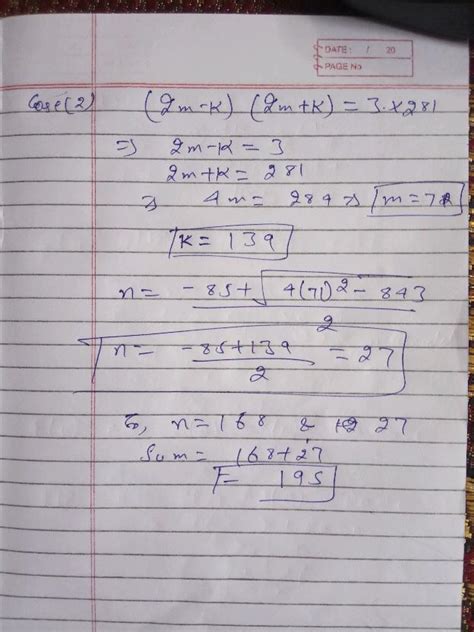 DATE: / 20
PAGE No
Case(2) (2m-k) (2m+k) = 3.×281
⇒ 2m-k = 3
2m+k = 281
⇒ 4m = 284 ⇒ m=71
k = 139
n = -85+√4(71)²-843
2
n = -85+139 = 27
2
So, n=168 & 27
Sum = 168+27
= 195